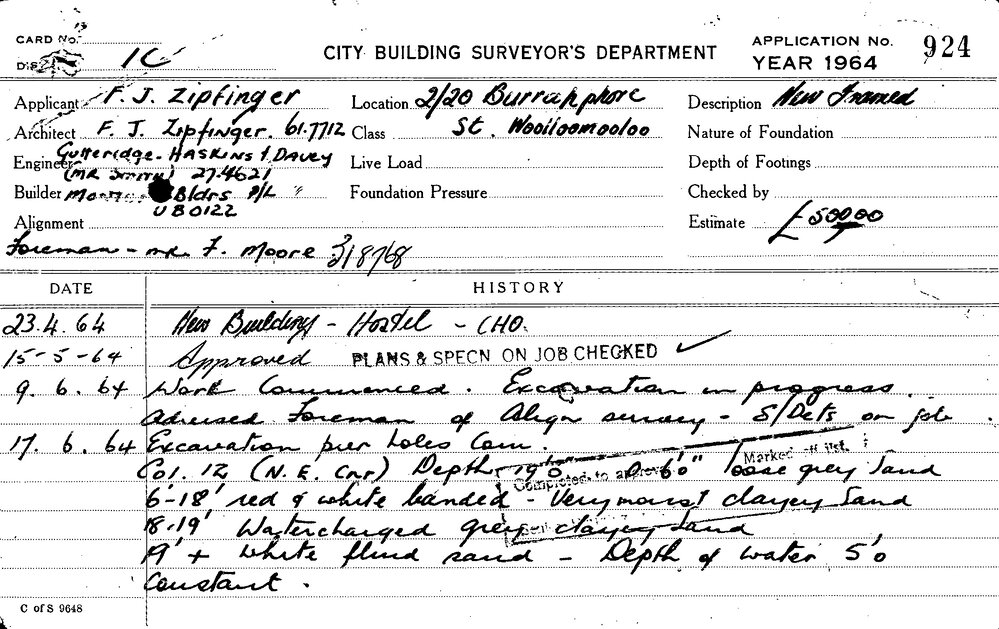 CARD No.
DIS. 1C
CITY BUILDING SURVEYOR'S DEPARTMENT
APPLICATION No. 924
YEAR 1964
Applicant F. J. Zipfinger
Location 2/20 Burrahphore
Description New Framed
Architect F. J. Zipfinger. 61.7712
Class St. Woolloomooloo
Nature of Foundation
Engineer Gutteridge. HASKINS & DAVEY
(MR SMITH) 27.4621
Live Load
Depth of Footings
Builder Bldrs P/L "
UB0122
Foundation Pressure
Checked by
Alignment
Estimate £50000
Foreman - MR. F. Moore 3/8/68
DATE HISTORY
23.4.64 New Buildings - Hostel - CHO.
15-5-64 Approved PLANS & SPECN ON JOB CHECKED ✓
9.6.64 Work Commenced. Excavation in progress.
Advised Foreman of Align survey - S/Dets on job.
17.6.64 Excavation pier holes Com.
Col. 12 (N.E. Cnr) Depth 19'0 0-6'0" loose grey Sand
Completed to approved
Marked off list.
6'-18' red & white banded - Very moist clayey Sand
18-19' Watercharged grey clayey Sand
19' + white fluid sand - Depth of water 5'0
Constant.
C of S 9648